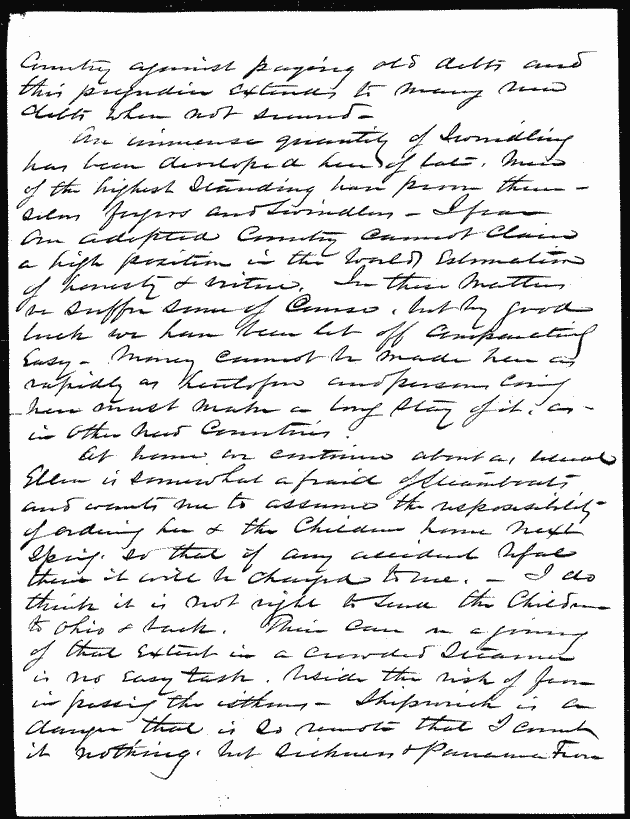 Country against paying old debts and
this prejudice extends to many new
debts when not secured -
An immense quantity of Swindling
has been developed here of late. Men
of the highest Standing have prove them -
selves forgers and Swindlers - I fear
our adopted Country cannot claim
a high position in the Worlds Estimation
of honesty & virtue. In these Matters
we suffer some of Course, but by good
luck we have been let off comparatively
Easy - Money cannot be made here as
rapidly as heretofore and persons Coming
here must make a long Stay of it, as -
in other New Countries.
At home we continue about as usual
Ellen is somewhat afraid of Steamboats
and wants me to assume the responsibility
of ordering her & the Children home next
Spring. so that if any accident befall
them it will be charged to me. - I do
think it is not right to Send the Children
to Ohio & back. Their care on a journey
of that Extent in a crowded Steamer
is no Easy task. beside the risk of fever
in passing the isthmus - Shipwreck is a
danger that is so remote that I count
it nothing, but Sickness & Panama Fever